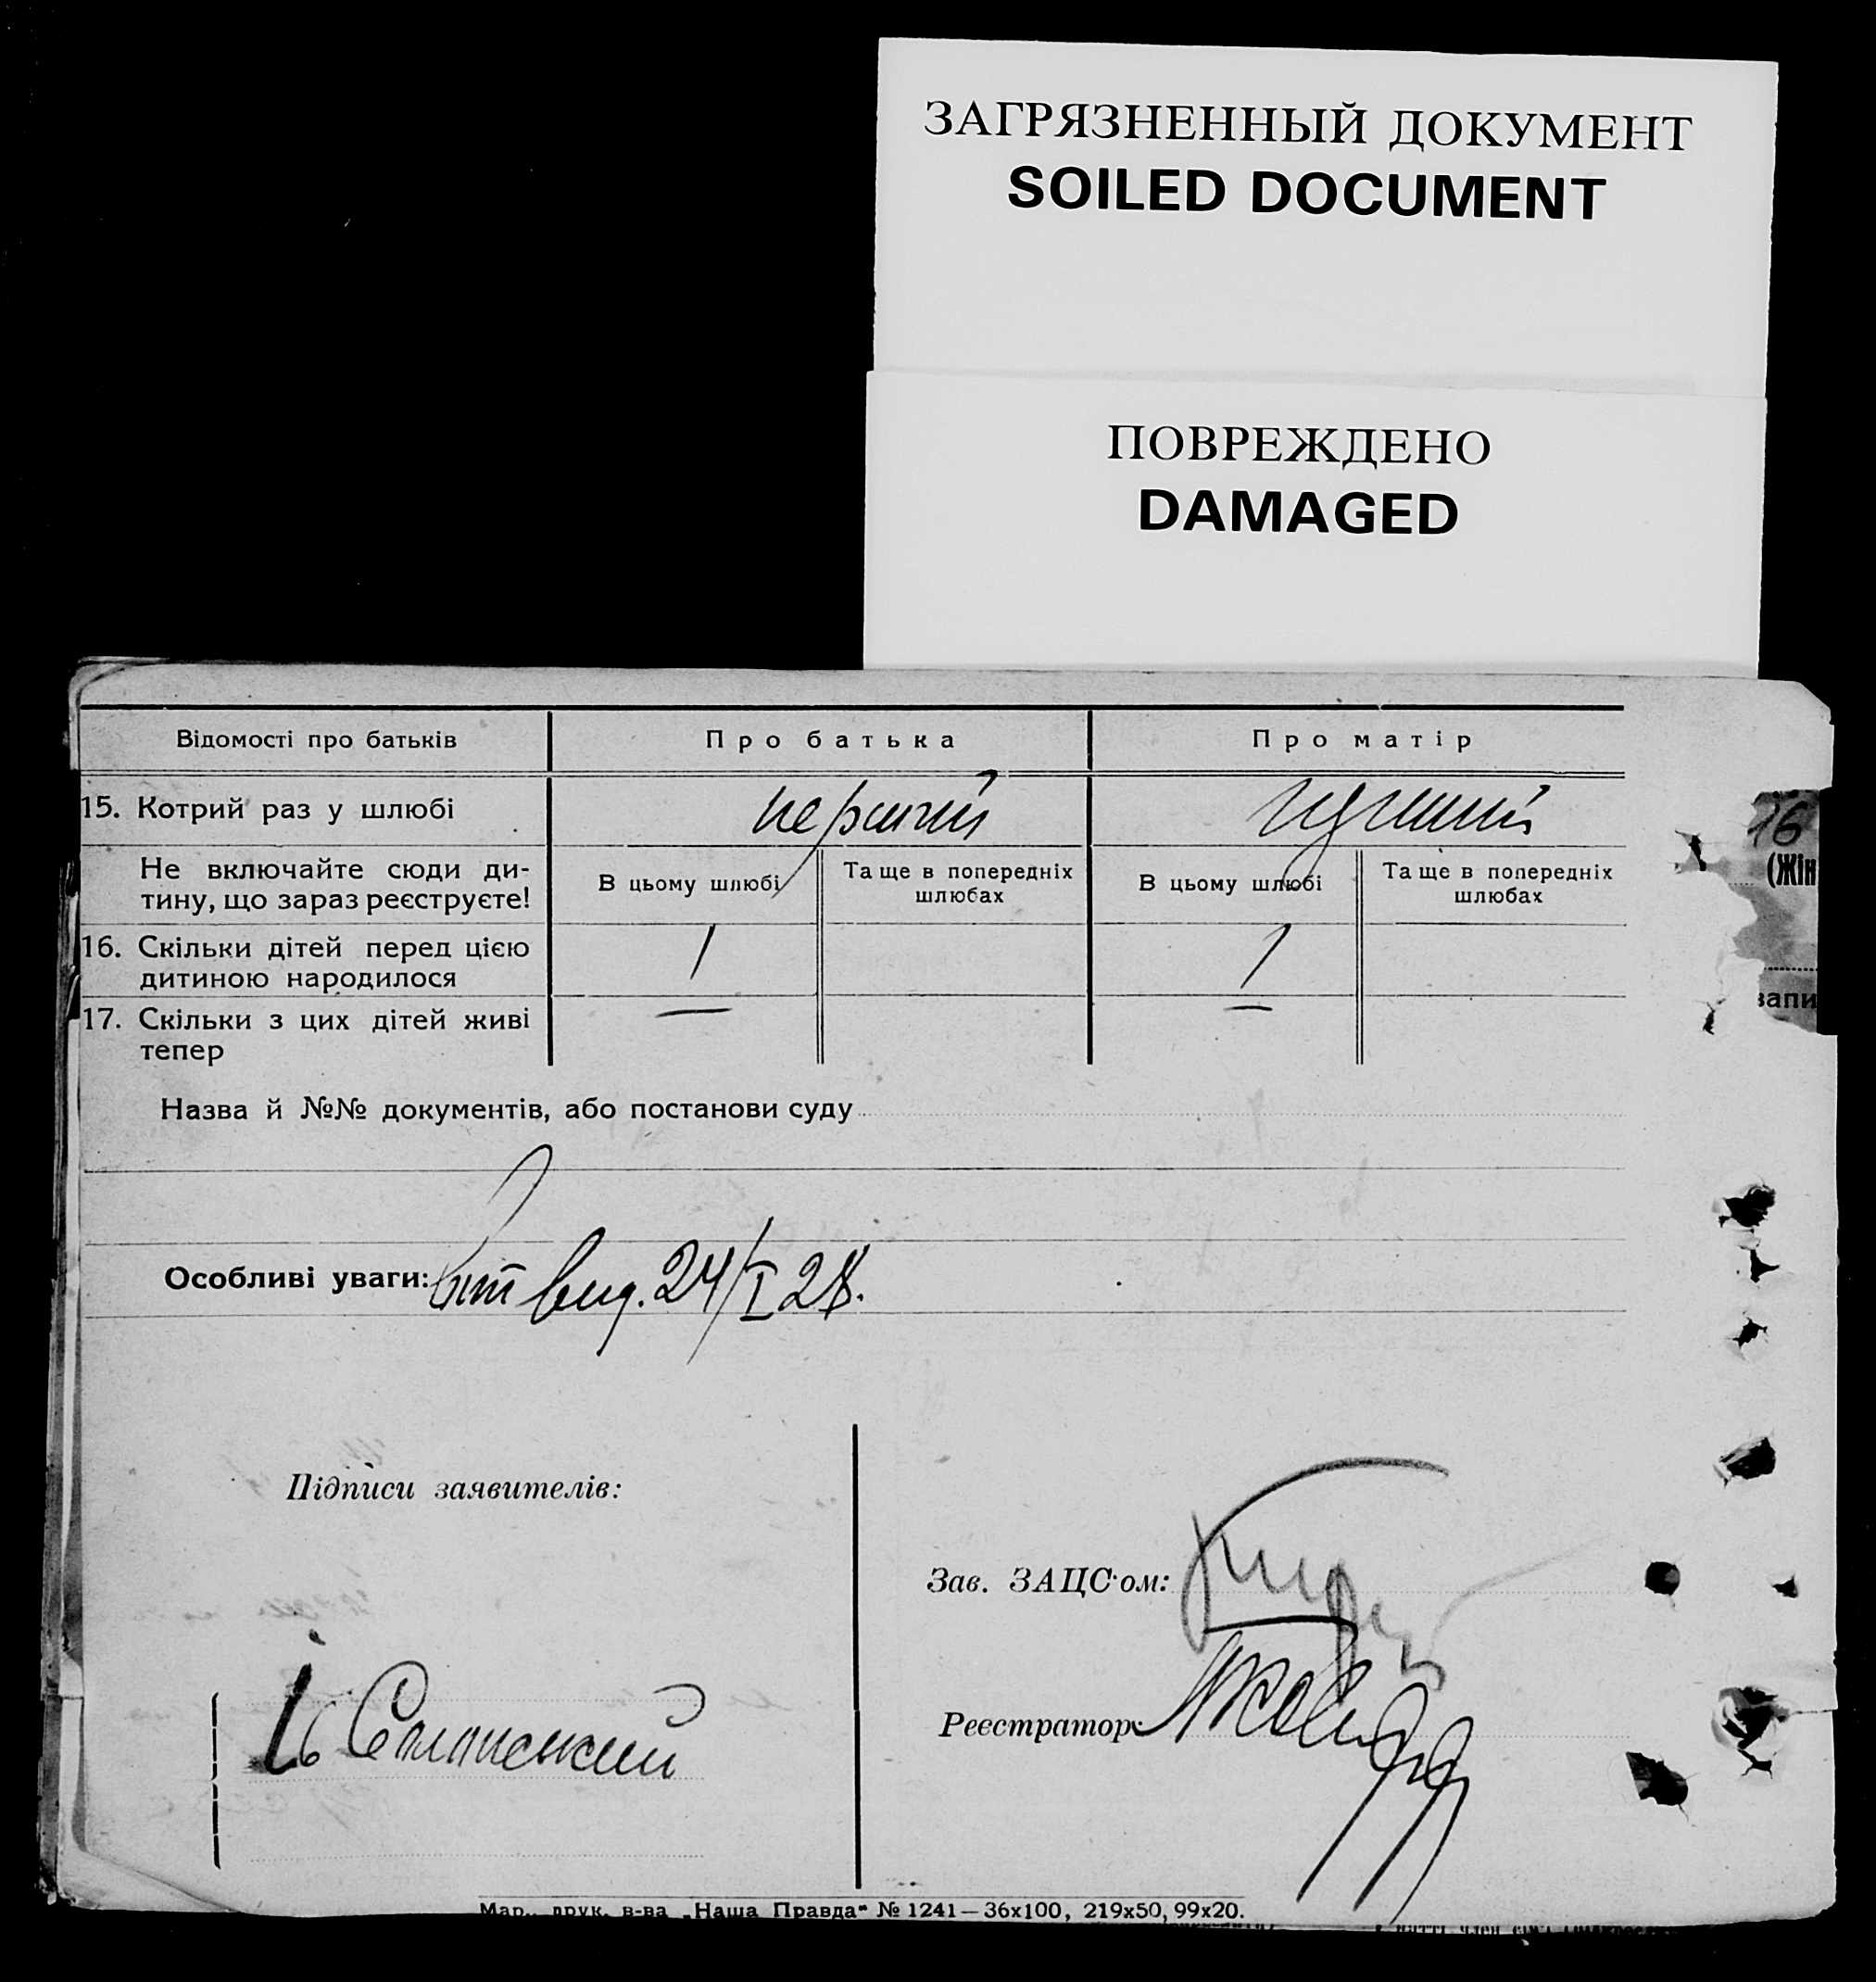 ЗАГРЯЗНЕННЫЙ ДОКУМЕНТ
SOILED DOCUMENT
ПОВРЕЖДЕНО
DAMAGED
Відомості про батьків Про батька Про матір
15. Котрий раз у шлюбі перший
Не включайте сюди ди-
тину, що зараз реєструєте!
В цьому шлюбі Та ще в попередніх шлюбах В цьому шлюбі Та ще в попередніх шлюбах
16. Скільки дітей перед цією
дитиною народилося 1 1
17. Скільки з цих дітей живі — —
тепер
16
(Жін
запи
Назва й №№ документів, або постанови суду
Особливі уваги: вид. 24/I 28.
Підписи заявителів:
Зав. ЗАЦС'ом:
Реєстратор:
Мар., друк. в-ва „Наша Правда" № 1241—36х100, 219х50, 99х20.